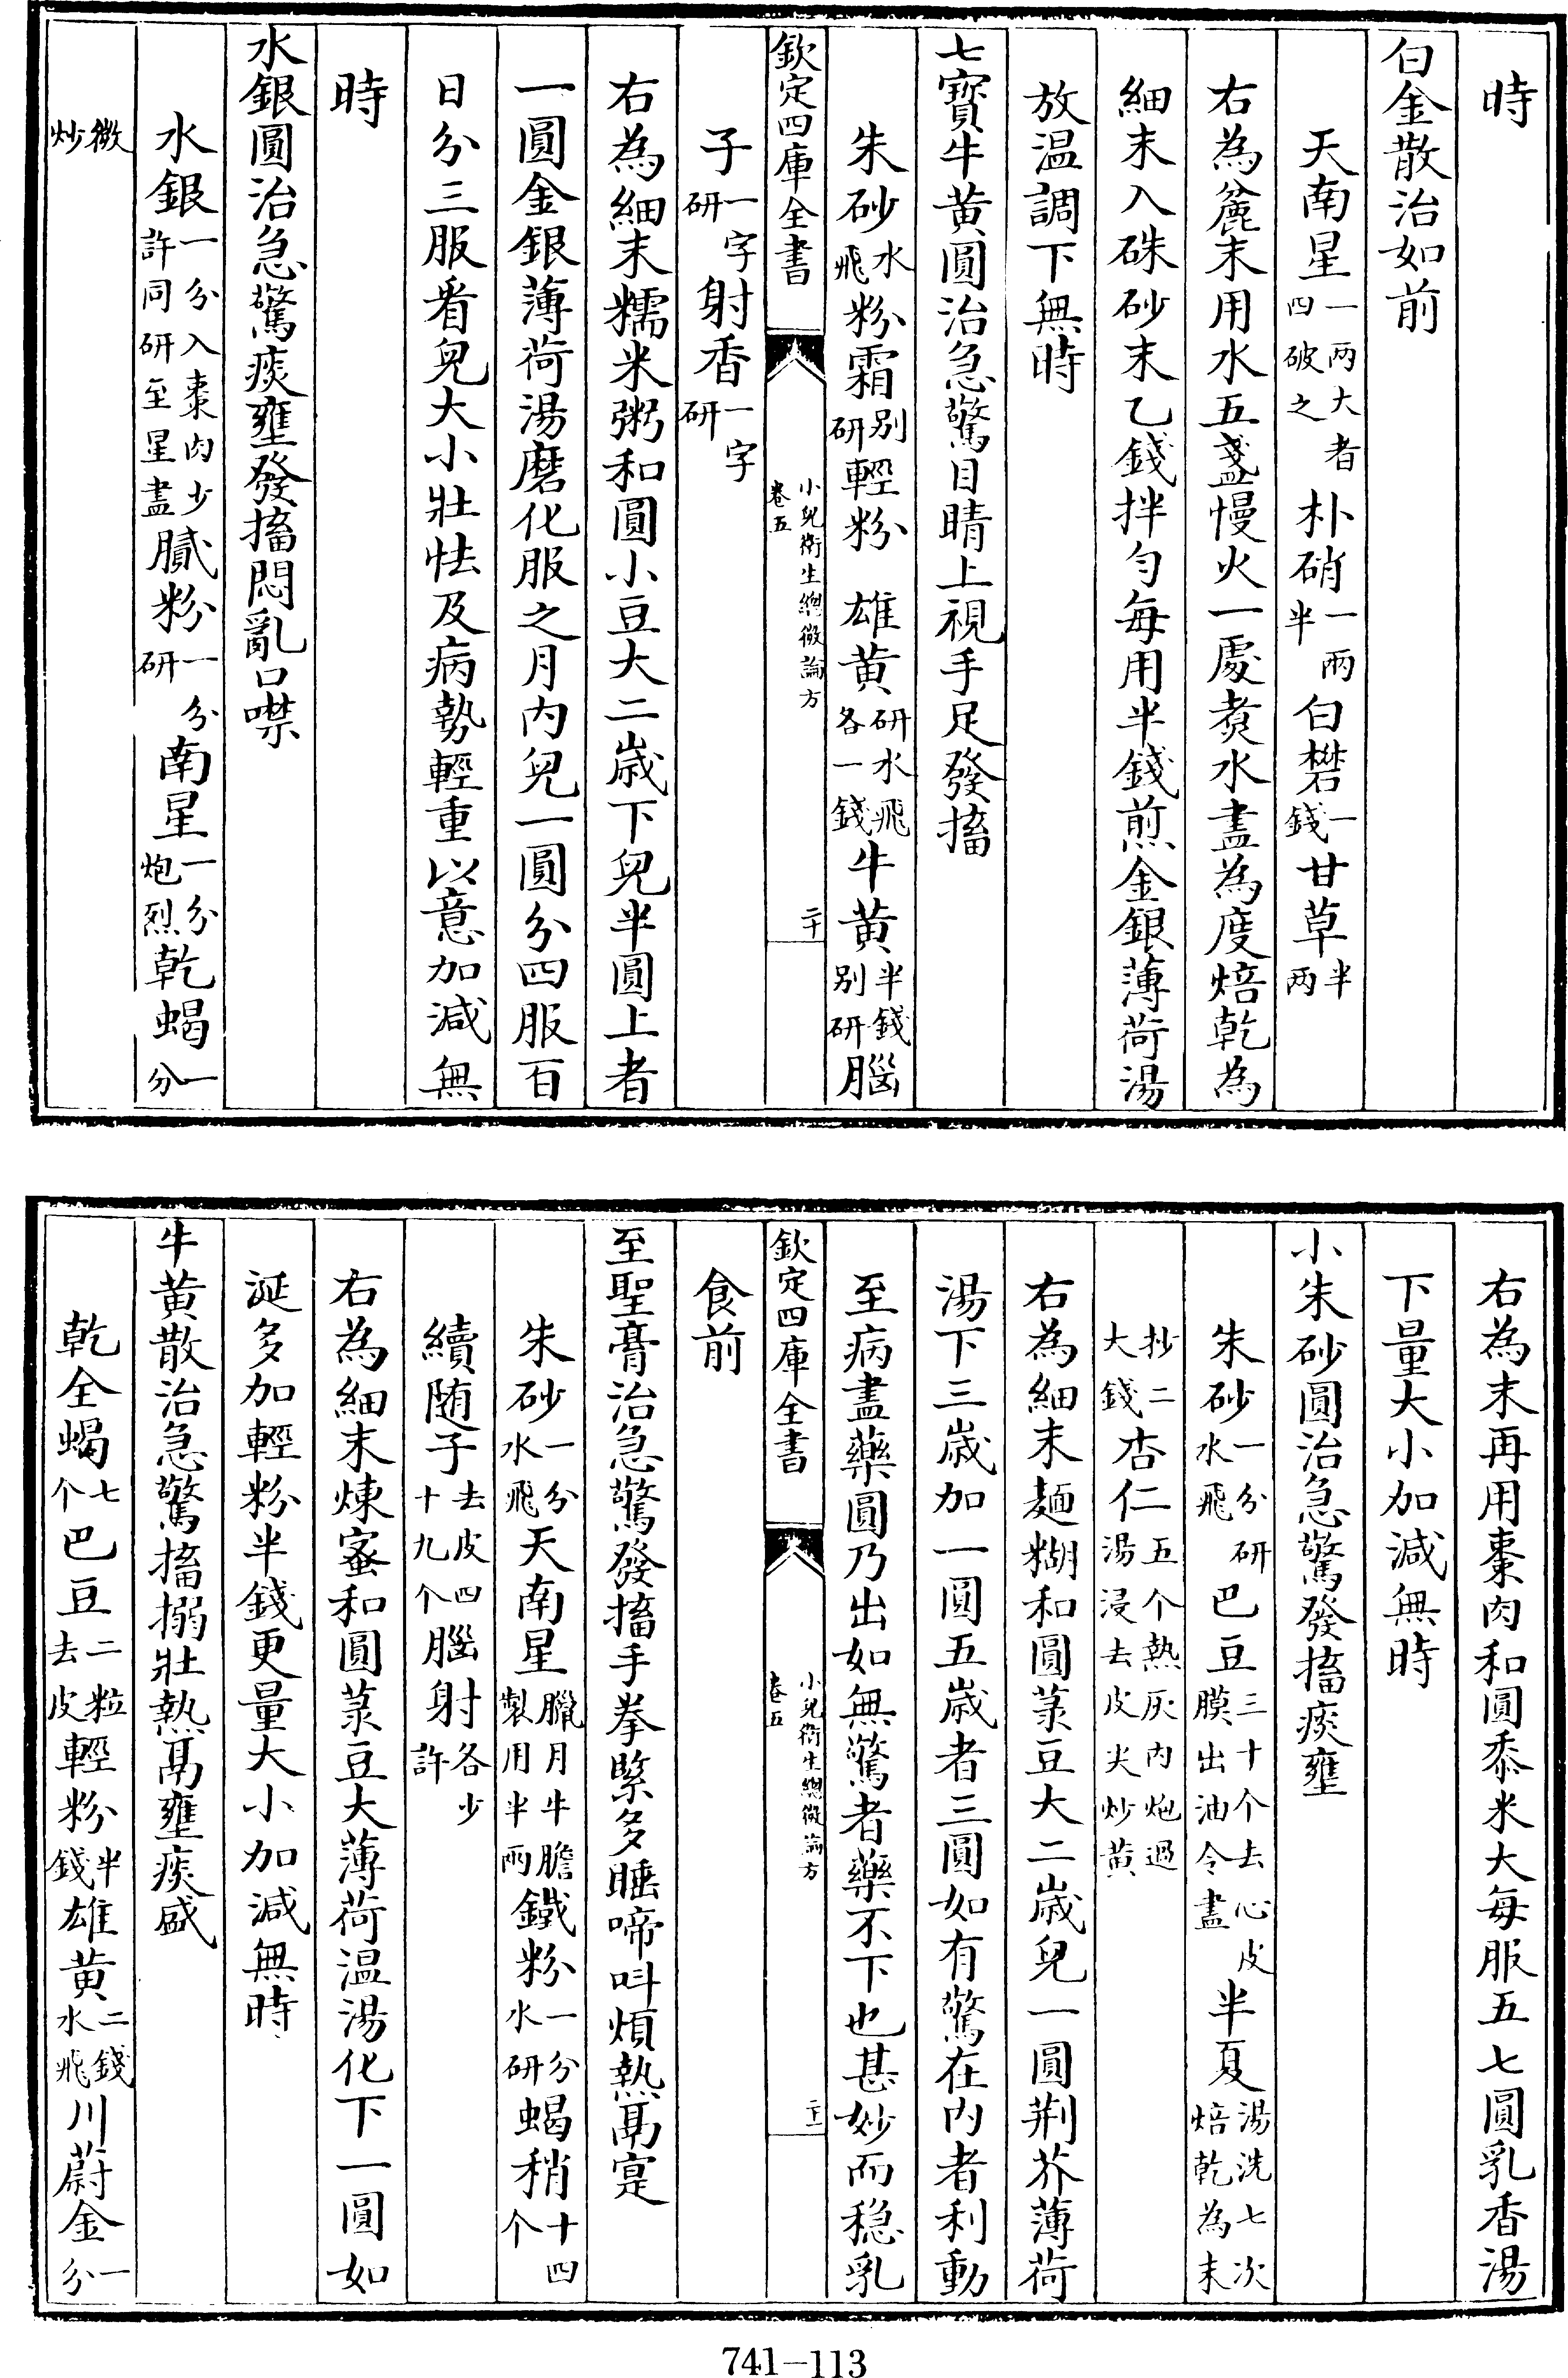 時
白金散治如前
天南星一兩大者四破之朴硝一兩半白礬一錢甘草半兩
右為麄末用水五盞慢火一處煑水盡為度焙乾為
細末入硃砂末乙錢拌匀每用半錢煎金銀薄荷湯
放温調下無時
七寳牛黄圓治急驚目睛上視手足發搐
朱砂水飛粉霜别研輕粉 雄黄研水飛各一錢牛黄半錢别研腦
欽定四庫全書 小兒衛生總微論方卷五 二十
子一字研射香一字研
右為細末糯米粥和圓小豆大二歳下兒半圓上者
一圓金銀薄荷湯磨化服之月内兒一圓分四服百
日分三服看兒大小壯怯及病勢輕重以意加減無
時
水銀圓治急驚痰壅發搐悶亂口噤
水銀一分入棗肉少許同研至星盡膩粉一分研南星一分炮烈乾蝎一分
微炒
右為末再用棗肉和圓黍米大每服五七圓乳香湯
下量大小加減無時
小朱砂圓治急驚發搐痰壅
朱砂一分研水飛巴豆三十个去心皮膜出油令盡半夏湯洗七次焙乾為末
抄二大錢杏仁五个熱灰内炮過湯浸去皮尖炒黄
右為細末麺糊和圓菉豆大二歳兒一圓荆芥薄荷
湯下三歳加一圓五歳者三圓如有驚在内者利動
至病盡藥圓乃出如無驚者藥不下也甚妙而稳乳
欽定四庫全書 小兒衛生總微論方卷五 二十一
食前
至聖膏治急驚發搐手拳緊多睡啼呌煩熱鬲寔
朱砂一分水飛天南星臘月牛膽製用半兩鐵粉一分水研蝎稍十四个
續随子去皮四十九个腦射各少許
右為細末煉蜜和圓菉豆大薄荷温湯化下一圓如
涎多加輕粉半錢更量大小加減無時
牛黄散治急驚搐搦壯熱鬲壅痰盛
乾全蝎七个巴豆二粒去皮輕粉半錢雄黄二錢水飛川蔚金一分
741—113